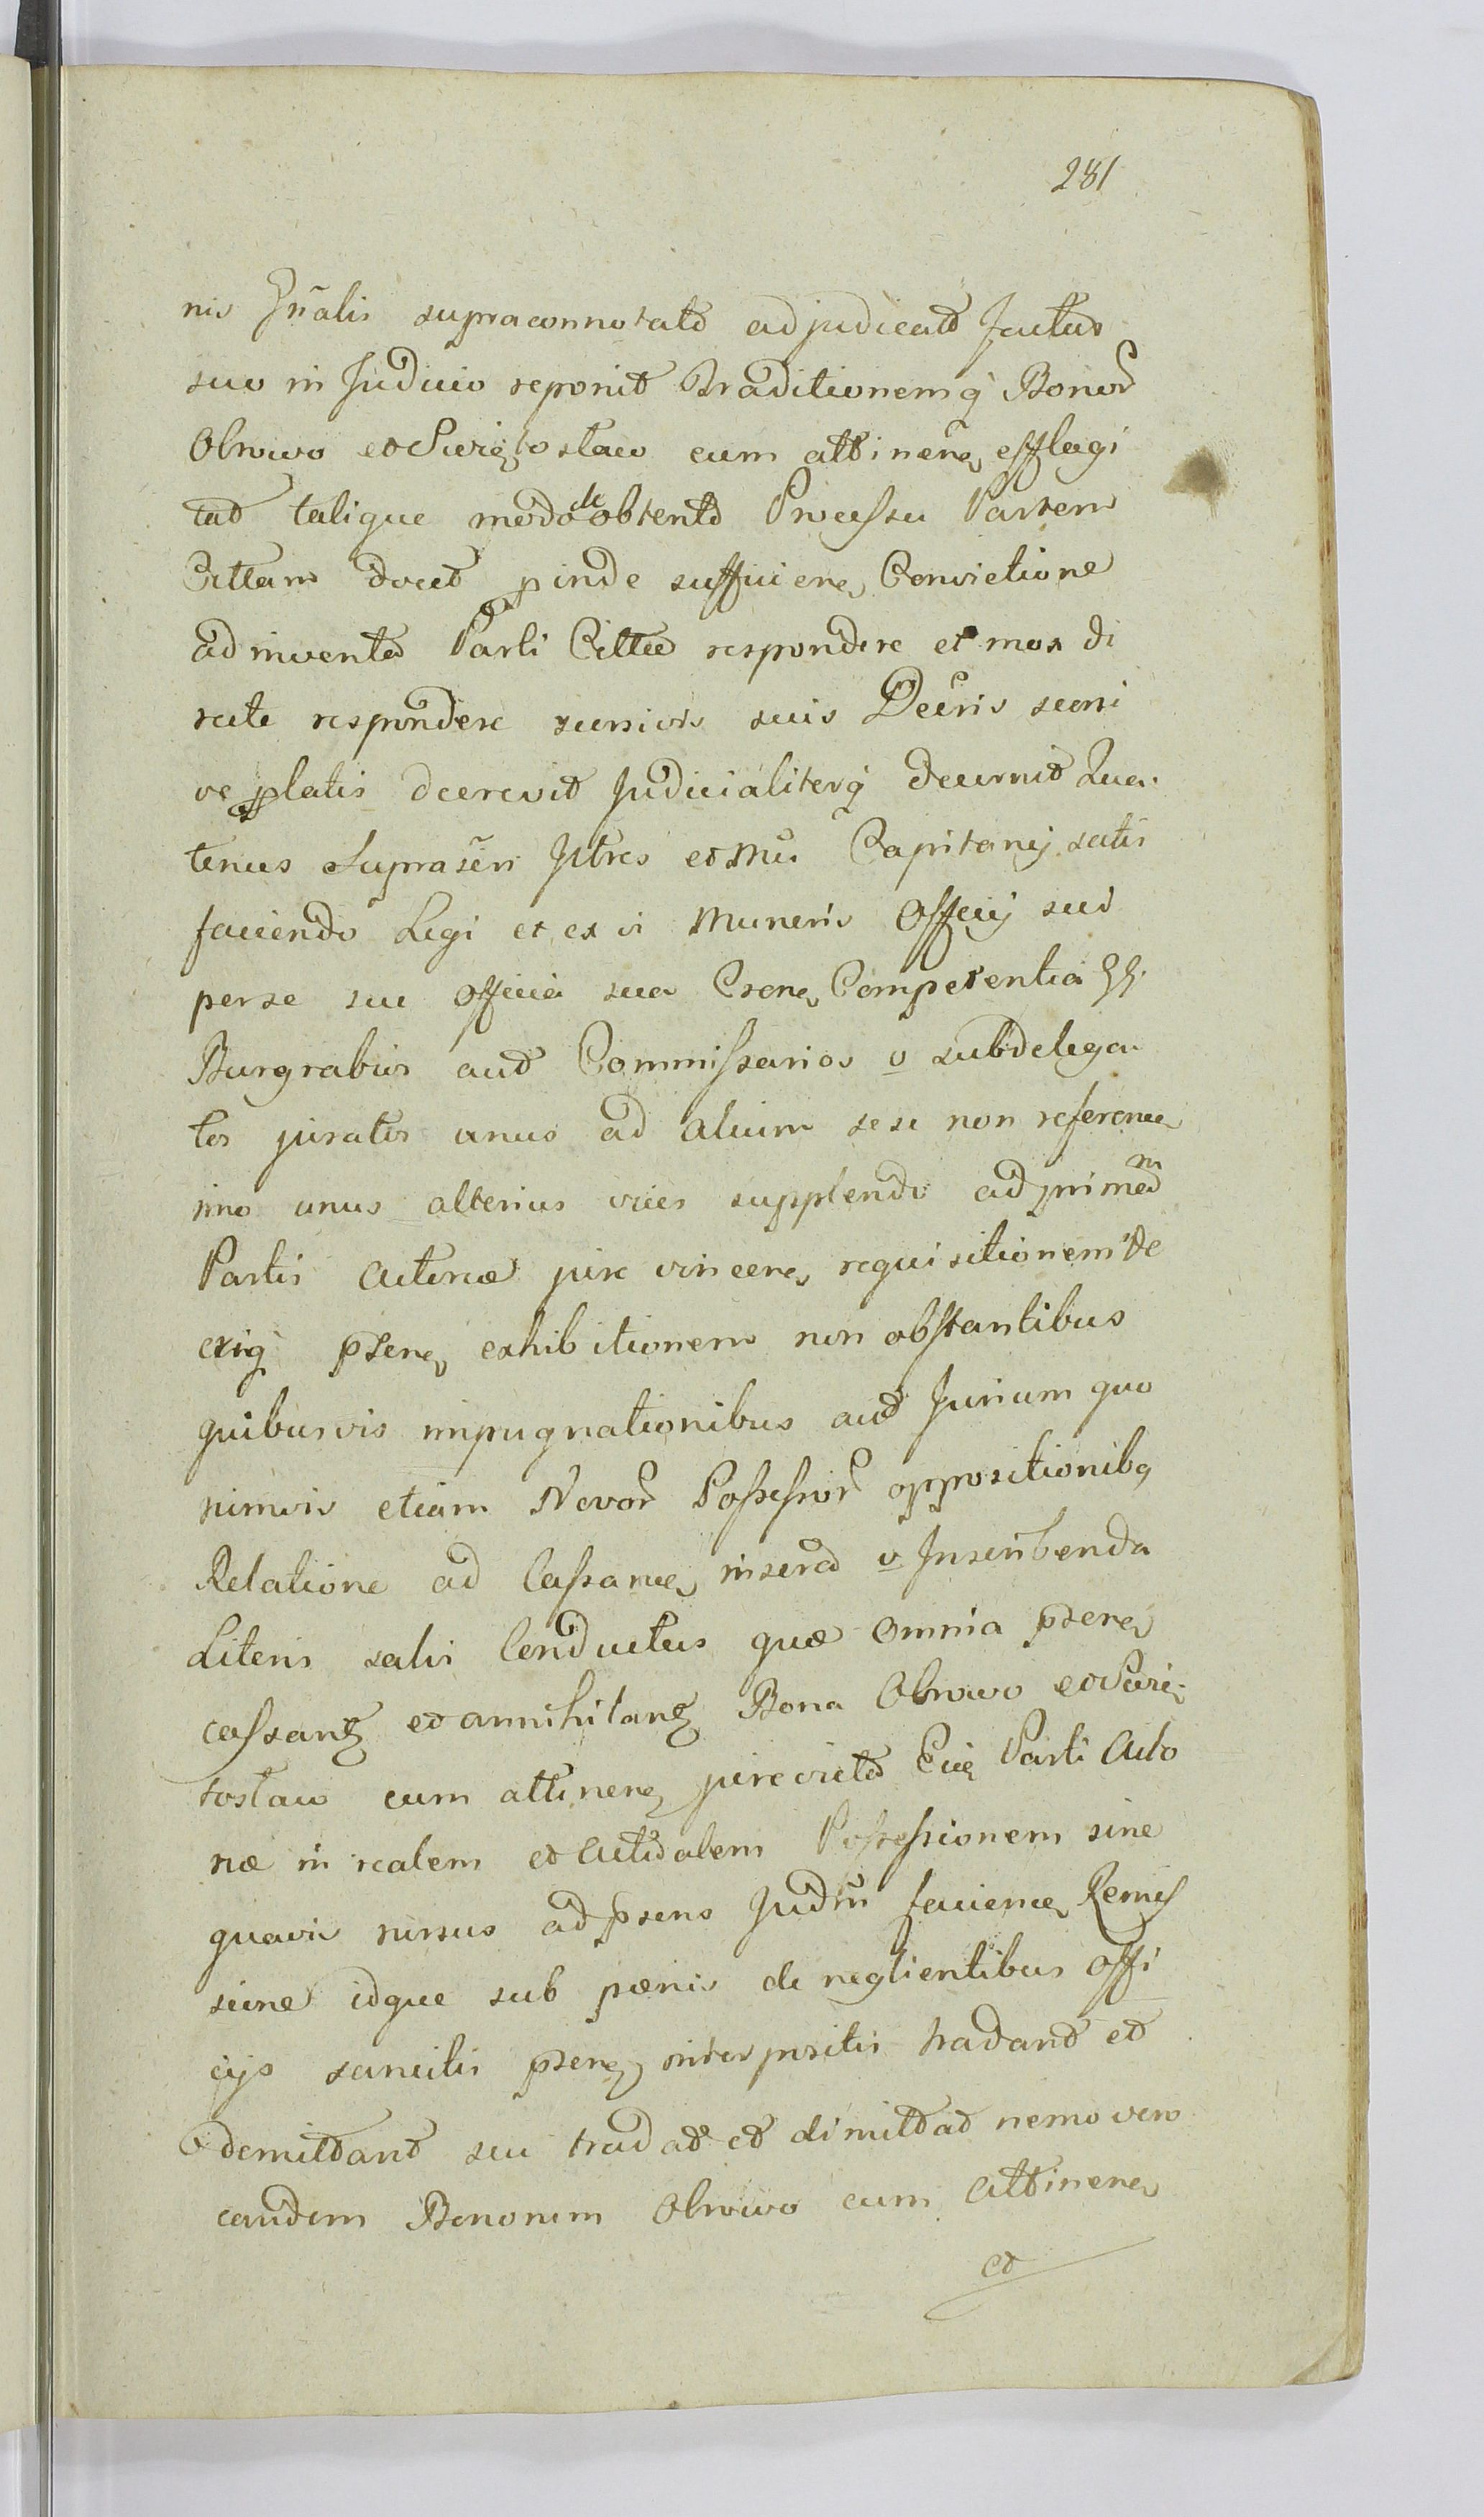 281
nis Gnalis supraconnotatâ adjudicatâ Jactus
suo in Judicio reponit Traditionemq Bonor
Obrowo et Swiętosław cum attinen efflagi
tat talique modo de obtento Processu Partem
Cittam docet pinde sufficien Convictione
adinventa Parti Cittæ respondere et mox di
recte respondere
suis Decris
ve platis decrevit Judicialiterq decernit Qua
tenus Suprascri Jltres et Mci Capitanei satis
faciendo Legi et ex vi Muneris Officij sui
per se seu officia sua Csen Competentia
Burgrabios aut Commissarios v subdelega
tos juratos unus ad alium sese non referen
imo unus alterius vices supplendo ad primam
Partis Actoreæ jure vincen requisitionem de
crig psen exhibitionem non obstantibus
quibusvis impugnationibus aut Jurium quo
rumvis etiam Novor Possessor oppositionibq
Relatione ad Cassan inserta v Inscribenda
Literis salvi Conductus quæ omnia psen
cassant et annihilant Bona Obrowo et Swię
tosław cum attinen jure victa Eiq Parti Acto
ræ in realem et actualem Possessionem sine
quavis rursus ad psens Judm facien Remis
sione idque sub pœnis de neglientibus Offi
cijs sancitis psen interpositis tradant et
demittant seu tradat et dimittat nemo vero
earudem Bonorum Obrowo cum Attinen
et